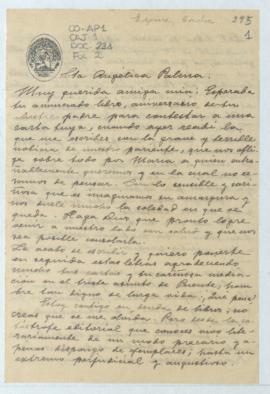 España, Sevilla 295
1
CO-AP1
CAJ 1
DOC 233
Fol 2
Srta Angélica Palma.
Muy querida amiga mía: Esperaba
su anunciado libro, aniversario de su
ilustre padre para contestar a una
carta suya, cuando ayer recibí la
que me escribe con la grave y terrible
noticia de nuestro pariente, que nos afli-
ge sobre todo por María a quien entra-
ñablemente queremos y en la cual no ce-
samos de pensar. Con lo sensible y cari-
ñosa que es imaginamos su amargura y
nos duele mucho la soledad en que se
queda. Haga Dios que pronto logre
venir a nuestro lado con salud y que nos
sea posible consolarla.
Le acabo de escribir y quiero ponerle
en seguida estas letras agradeciendo
mucho sus cartas y su cariñosa media-
ción en el triste asunto de
bre tan digno de larga vida. ¡Qué pena!
Estoy contigo en deuda de libros; no
creas que se me olvida. Pero desde la ca-
tástrofe editorial que conoces vivo lite-
rariamente de un modo precario y a
penas dispongo de ejemplares; hasta un
extremo perjudicial y angustioso.